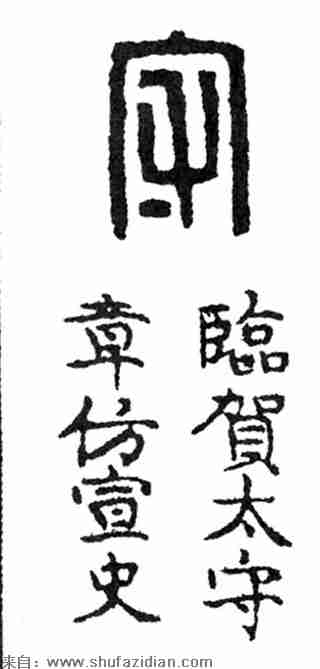 守
臨賀太守
章仿宣史
来自：www.shufazidian.com